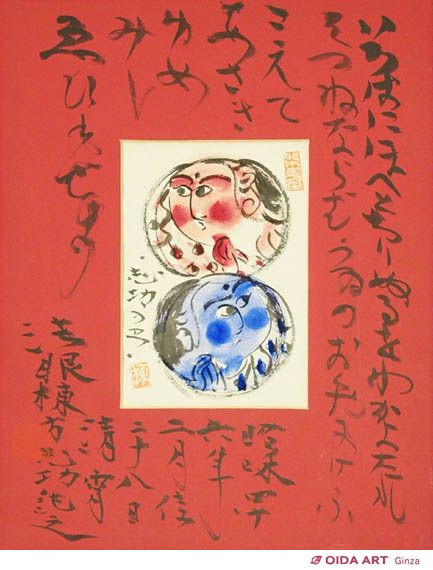 いろはにほへとちりぬるをわかよたれ
そつねならむうゐのおくやまけふ
こえて
あさき
ゆめ
みし
ゑひもせす
昭和四
六年
二月佳
二十八日
清宵
棟方志功
志功
OIDA ART Ginza